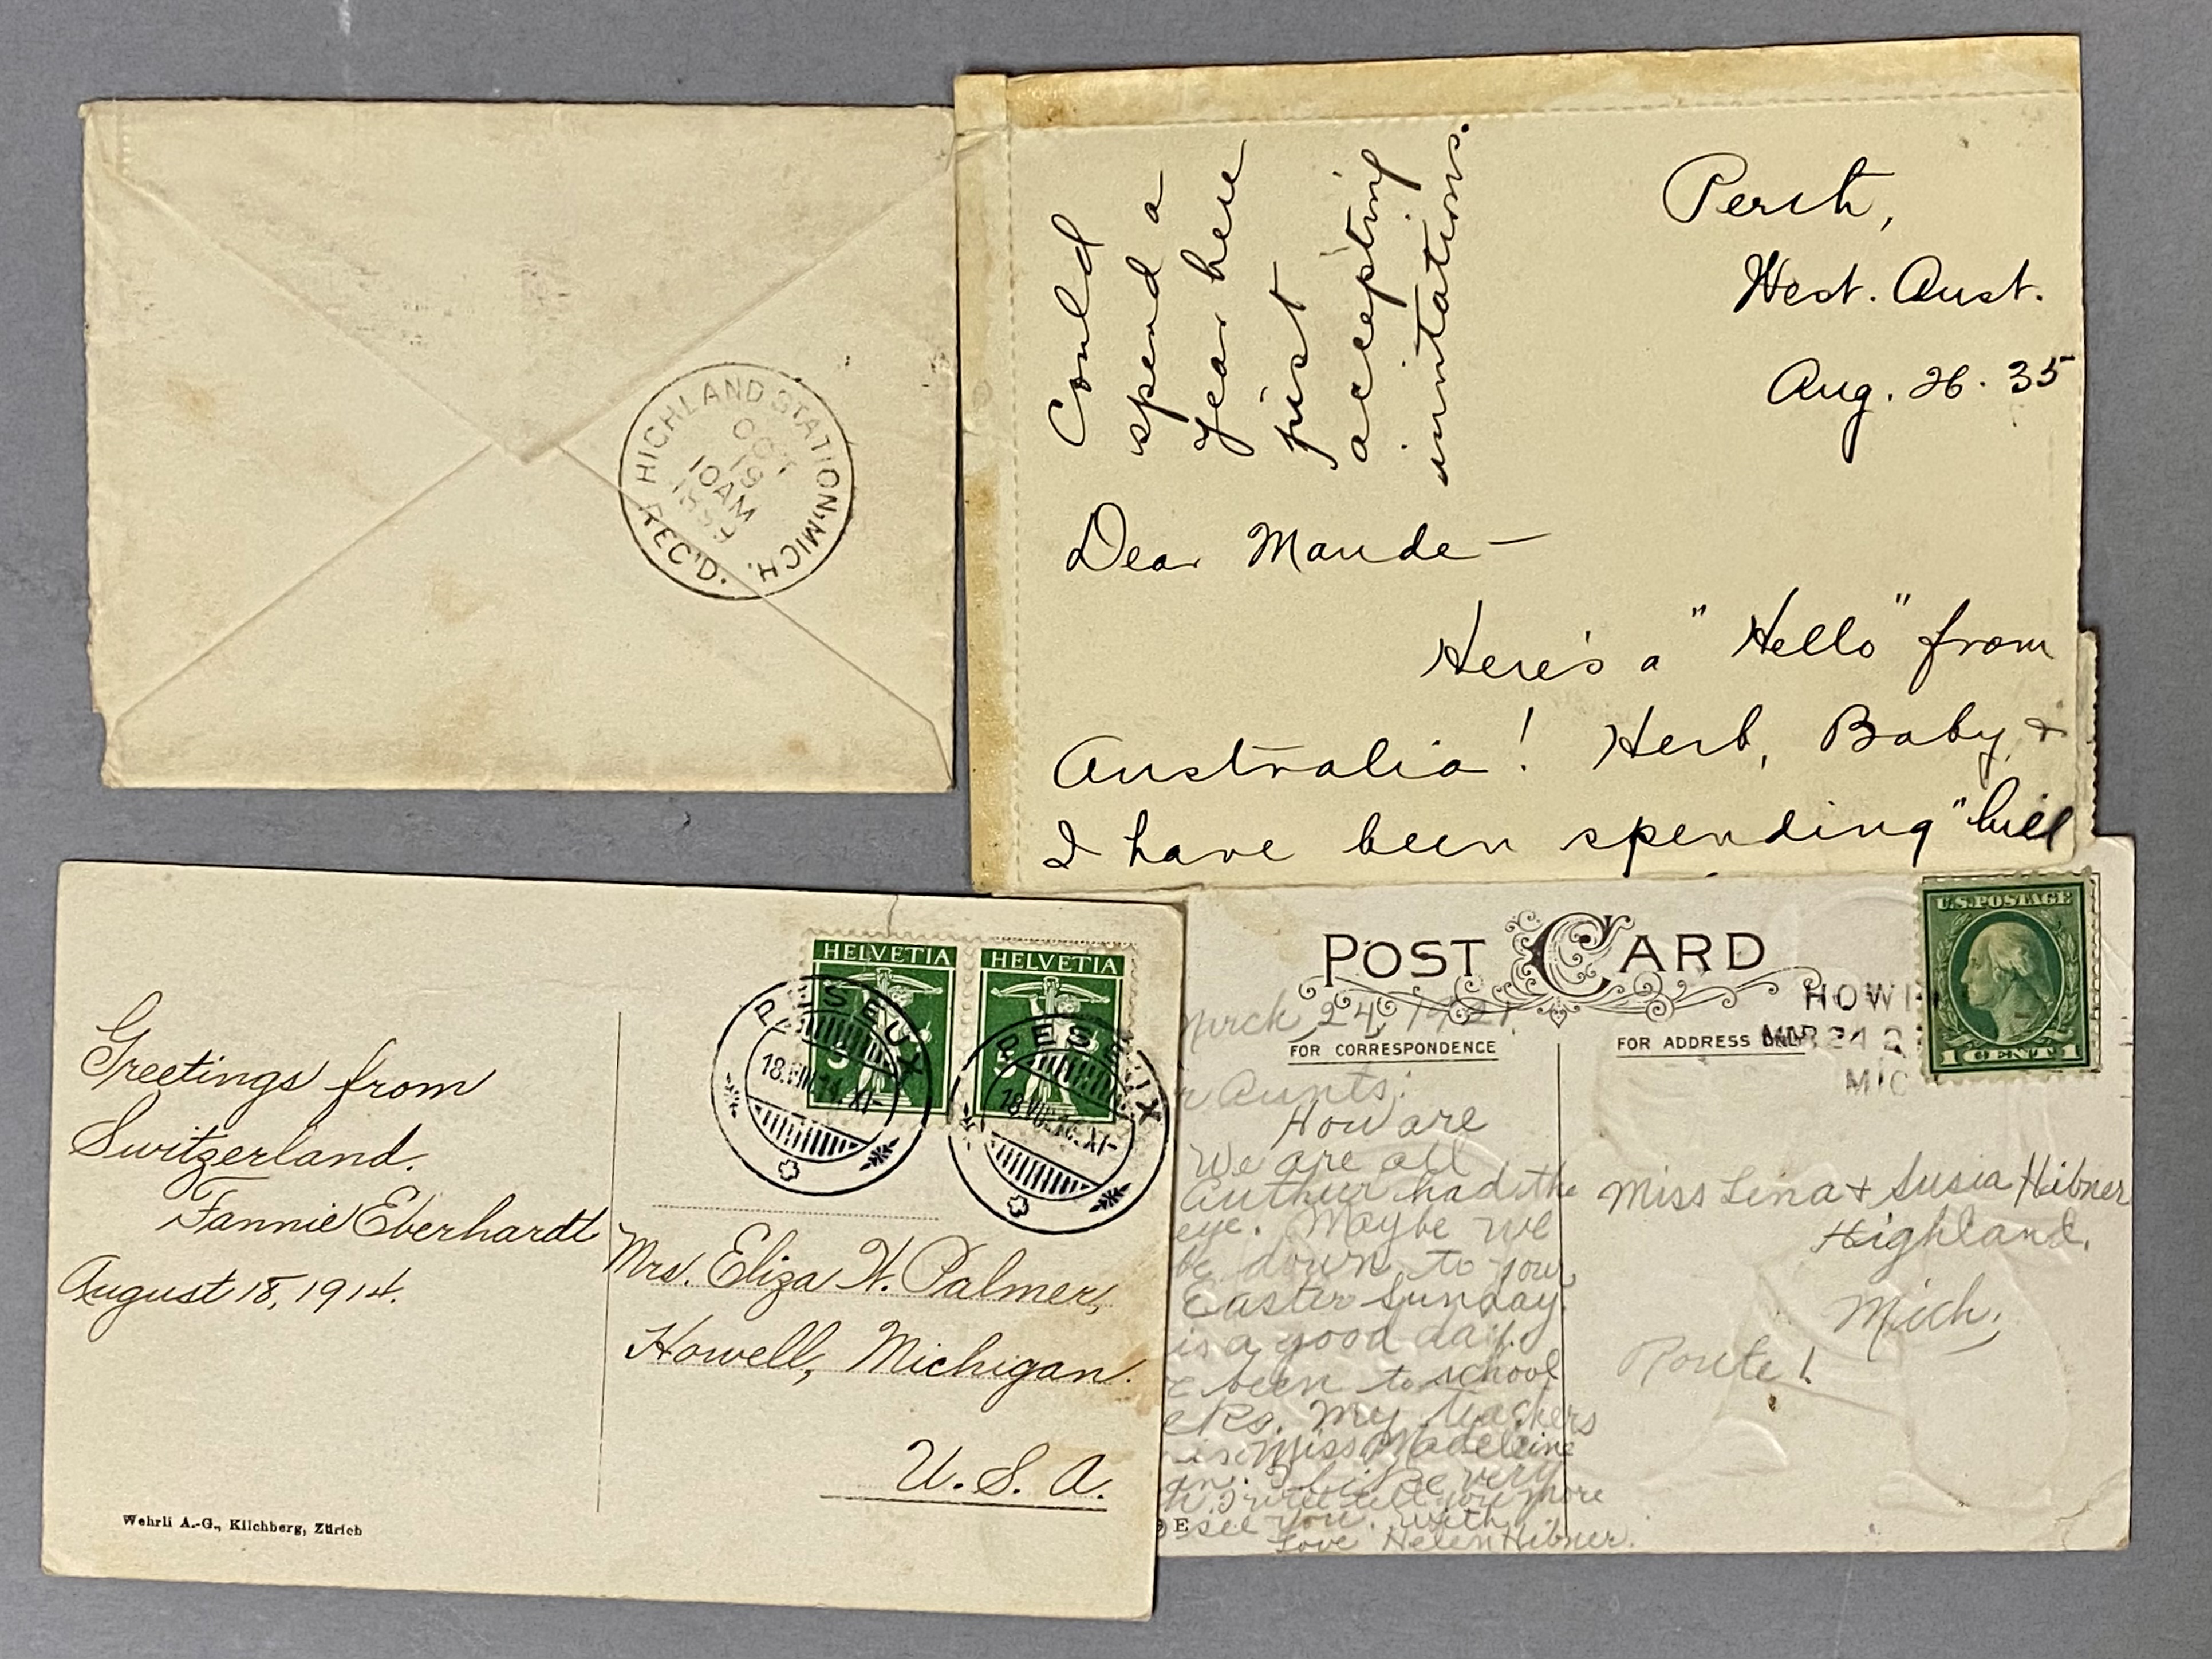 HIGHLAND STATION, MICH.
OCT
19
10AM
REC'D.
Could
spend a
year here
just
accepting
invitations.
Perth,
West. Aust.
Aug. 26. 35
Dear Maude —
Here's a "Hello" from
Australia! Herb, Baby, &
I have been spending "hill
Greetings from
Switzerland.
Fannie Eberhardt
August 18, 1914.
Wehrli A.-G., Kilchberg, Zürich
HELVETIA
HELVETIA
PESEUX
18.VIII.14.XI-
PESEUX
18.VIII.14.XI-
Mrs. Eliza W. Palmer,
Howell, Michigan.
U. S. A.
POST CARD
March 24, 1921
FOR CORRESPONDENCE
Aunts:
How are
We are all
Authur had the
eye. Maybe we
be down to your
Easter Sunday
is a good day.
been to school
My teachers
is Miss Madeleine
I like very
I will tell you more
see you. with
Love Helen Hibner.
FOR ADDRESS ONLY
HOW
MAR 24 2
MIC
U.S. POSTAGE
1 CENT 1
Miss Lina + Susia Hibner
Highland,
Mich,
Route 1.